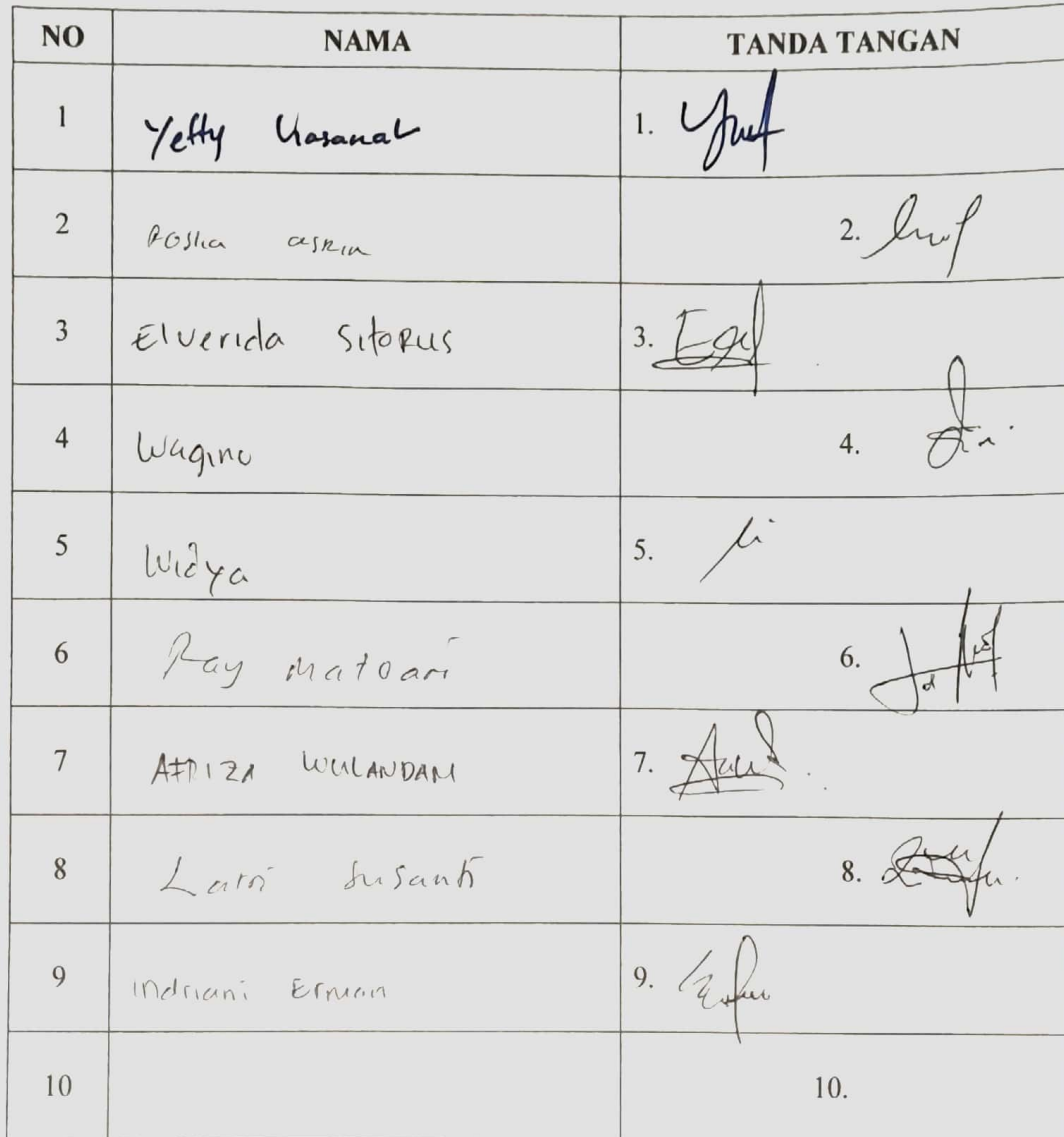 NO NAMA TANDA TANGAN
1 Yetty Hasanah 1.
2 Roslia asrin 2.
3 Elverida SitoRus 3.
4 Wagino 4.
5 Widya 5.
6 Ray matoari 6.
7 AFRIZA WULANDARI 7.
8 Latri Susanti 8.
9 indriani Erman 9.
10 10.